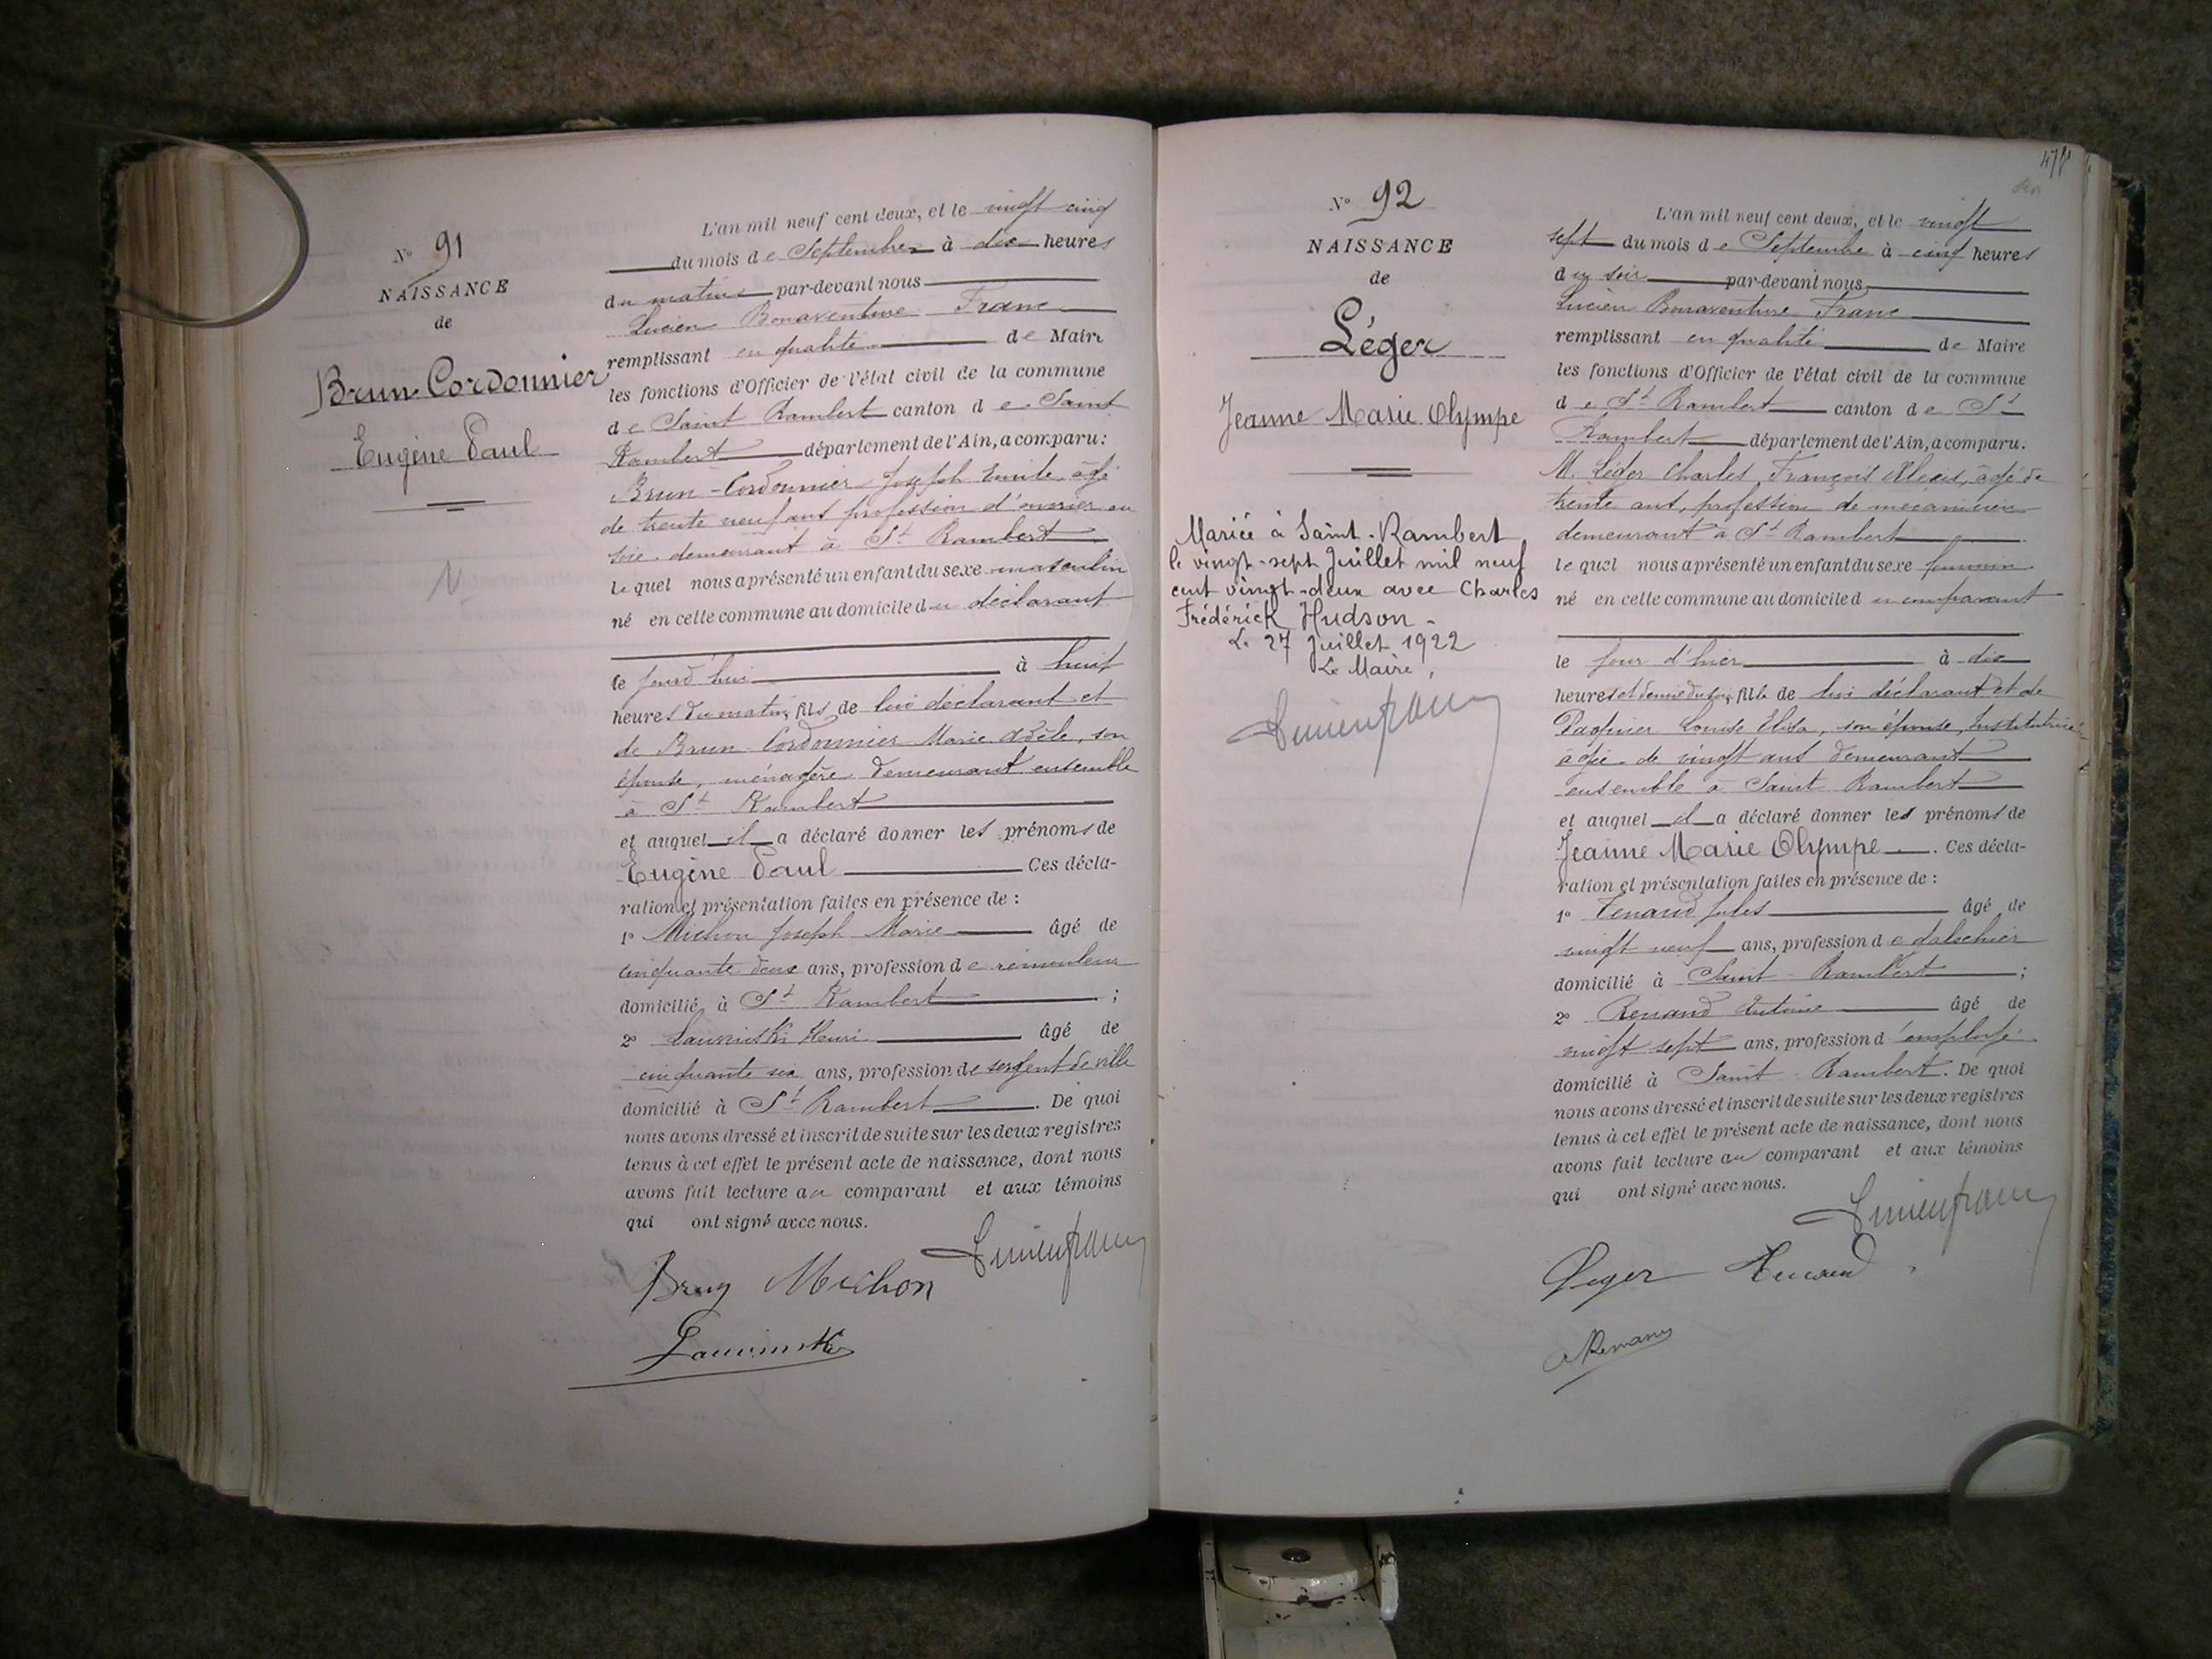 N° 91
NAISSANCE
de
Brun-Cordonnier
Eugène Paul
L'an mil neuf cent deux, et le vingt cinq
du mois de Septembre à dix heures
du matin par-devant nous
Lucien Bonaventure Franc
remplissant en qualité de Maire
les fonctions d'Officier de l'état civil de la commune
de Saint Rambert canton de Saint
Rambert département de l'Ain, a comparu:
Brun-Cordonnier Joseph Emile, âgé
de trente neuf ans profession d'ouvrier en
soie demeurant à St Rambert
lequel nous a présenté un enfant du sexe masculin
né en cette commune au domicile du déclarant
le jourd'hui à huit
heures du matin, fils de lui déclarant et
de Brun-Cordonnier Marie Adèle, son
épouse, ménagère demeurant ensemble
à St Rambert
et auquel il a déclaré donner les prénoms de
Eugène Paul Ces décla-
ration et présentation faites en présence de :
1° Michon Joseph Marie âgé de
cinquante deux ans, profession de rémouleur
domicilié à St Rambert ;
2° Henri âgé de
cinquante six ans, profession de sergent de ville
domicilié à St Rambert. De quoi
nous avons dressé et inscrit de suite sur les deux registres
tenus à cet effet le présent acte de naissance, dont nous
avons fait lecture au comparant et aux témoins
qui ont signé avec nous.
Lucien Franc
Brun Michon
478
N° 92
NAISSANCE
de
Léger
Jeanne Marie Olympe
Mariée à Saint-Rambert
le vingt-sept Juillet mil neuf
cent vingt-deux avec Charles
Frédérick Hudson -
Le 27 Juillet 1922
Le Maire,
Lucien Franc
L'an mil neuf cent deux, et le vingt
sept du mois de Septembre à cinq heures
du soir par-devant nous
Lucien Bonaventure Franc
remplissant en qualité de Maire
les fonctions d'Officier de l'état civil de la commune
de St Rambert canton de St
Rambert département de l'Ain, a comparu.
M. Léger Charles François Alexis, âgé de
trente ans, profession de mécanicien
demeurant à St Rambert
lequel nous a présenté un enfant du sexe féminin
né en cette commune au domicile du comparant
le jour d'hier à dix
heures et demie du soir, fille de lui déclarant et de
Louise Elisa, son épouse, Institutrice
âgée de vingt ans demeurant
ensemble à Saint Rambert
et auquel il a déclaré donner les prénoms de
Jeanne Marie Olympe. Ces décla-
ration et présentation faites en présence de :
1° Jules âgé de
vingt neuf ans, profession de
domicilié à Saint-Rambert ;
2° Renand Antoine âgé de
vingt sept ans, profession d'employé
domicilié à Saint-Rambert. De quoi
nous avons dressé et inscrit de suite sur les deux registres
tenus à cet effet le présent acte de naissance, dont nous
avons fait lecture au comparant et aux témoins
qui ont signé avec nous.
Lucien Franc
Leger